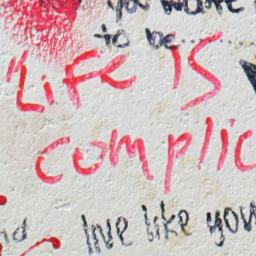 you
to be
"Life is
complic
live like you